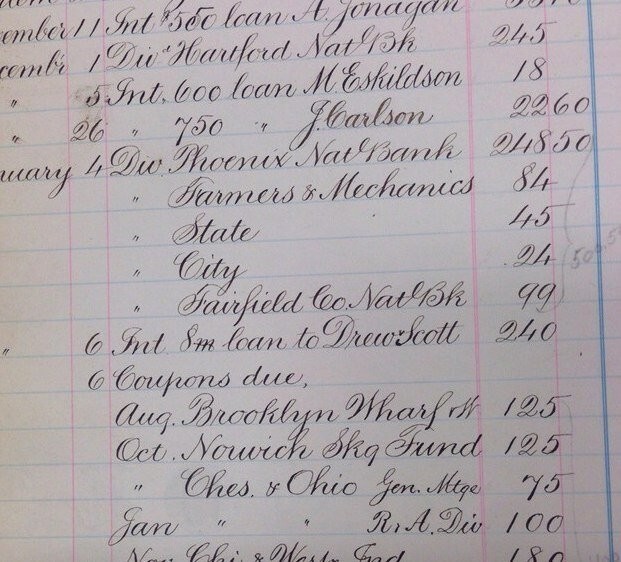 ember 11 Int $550 loan A. Jonagan
cembr 1 Div Hartford Natl Bk 245
" 5 Int. 600 loan M. Eskildson 18
" 26 " 750 " J. Carlson 22 60
nuary 4 Div. Phoenix Natl Bank 248 50
" Farmers & Mechanics 84
" State 45
" City 24
" Fairfield Co. Natl Bk 99
" 6 Int 8m loan to Drew & Scott 240
6 Coupons due,
Aug. Brooklyn Wharf 125
Oct. Norwich Skg Fund 125
" Ches. & Ohio Gen. Mtge 75
Jan " " R. & A. Div 100
Nov Chi & West. Ind 180